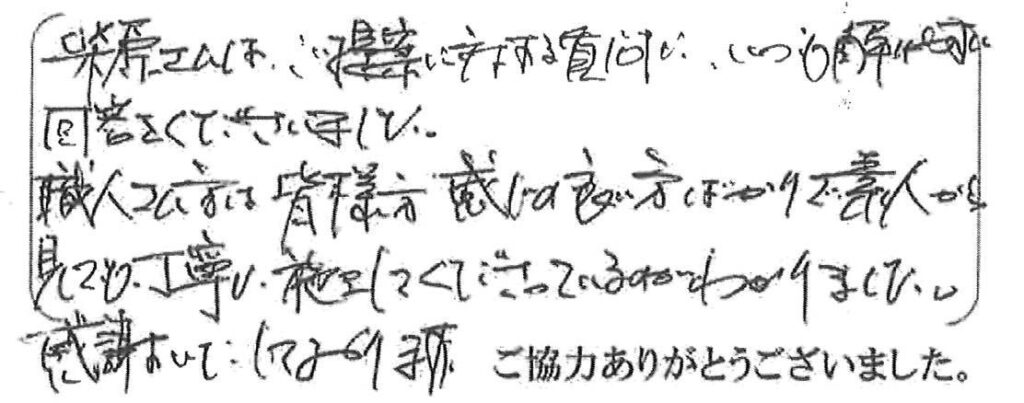 さんは、ご提案に対する質問に、いつも
回答をくて下さいました。
職人さん方は皆様方感じの良い方ばかりで素人から
見ても、丁寧に、施工してくて下さっているのがわかりました。
感謝いたしております。ご協力ありがとうございました。